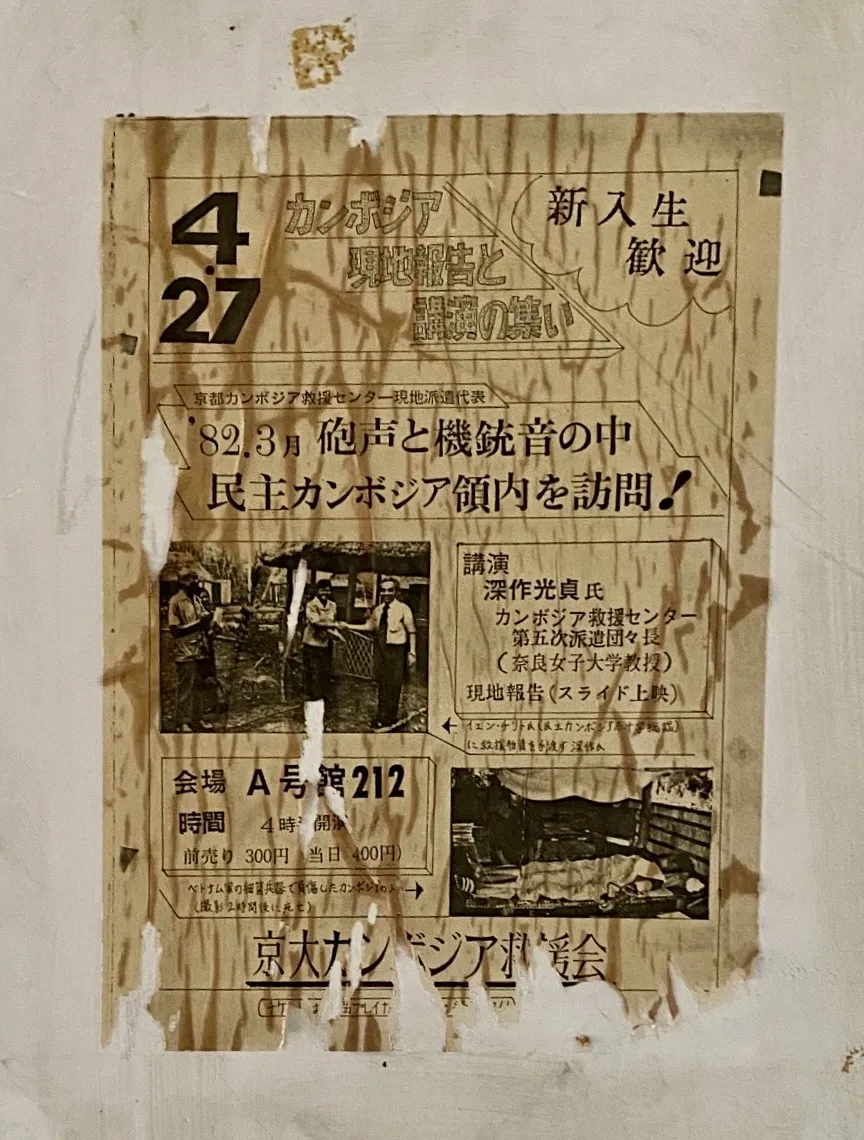 4・27
カンボジア
現地報告と
講演の集い
新入生
歓迎
京都カンボジア救援センター現地派遣代表
'82.3月 砲声と機銃音の中
民主カンボジア領内を訪問!
講演
深作光貞氏
カンボジア救援センター
第五次派遣団々長
(奈良女子大学教授)
現地報告(スライド上映)
←イエン・チリト氏(民主カンボジア赤十字総裁)
に救援物資を手渡す深作氏
会場 A号館212
時間 4時 開演
前売り 300円 当日 400円)
ベトナム軍の細菌兵器で負傷したカンボジア →
(撮影2時間後に死亡)
京大カンボジア救援会